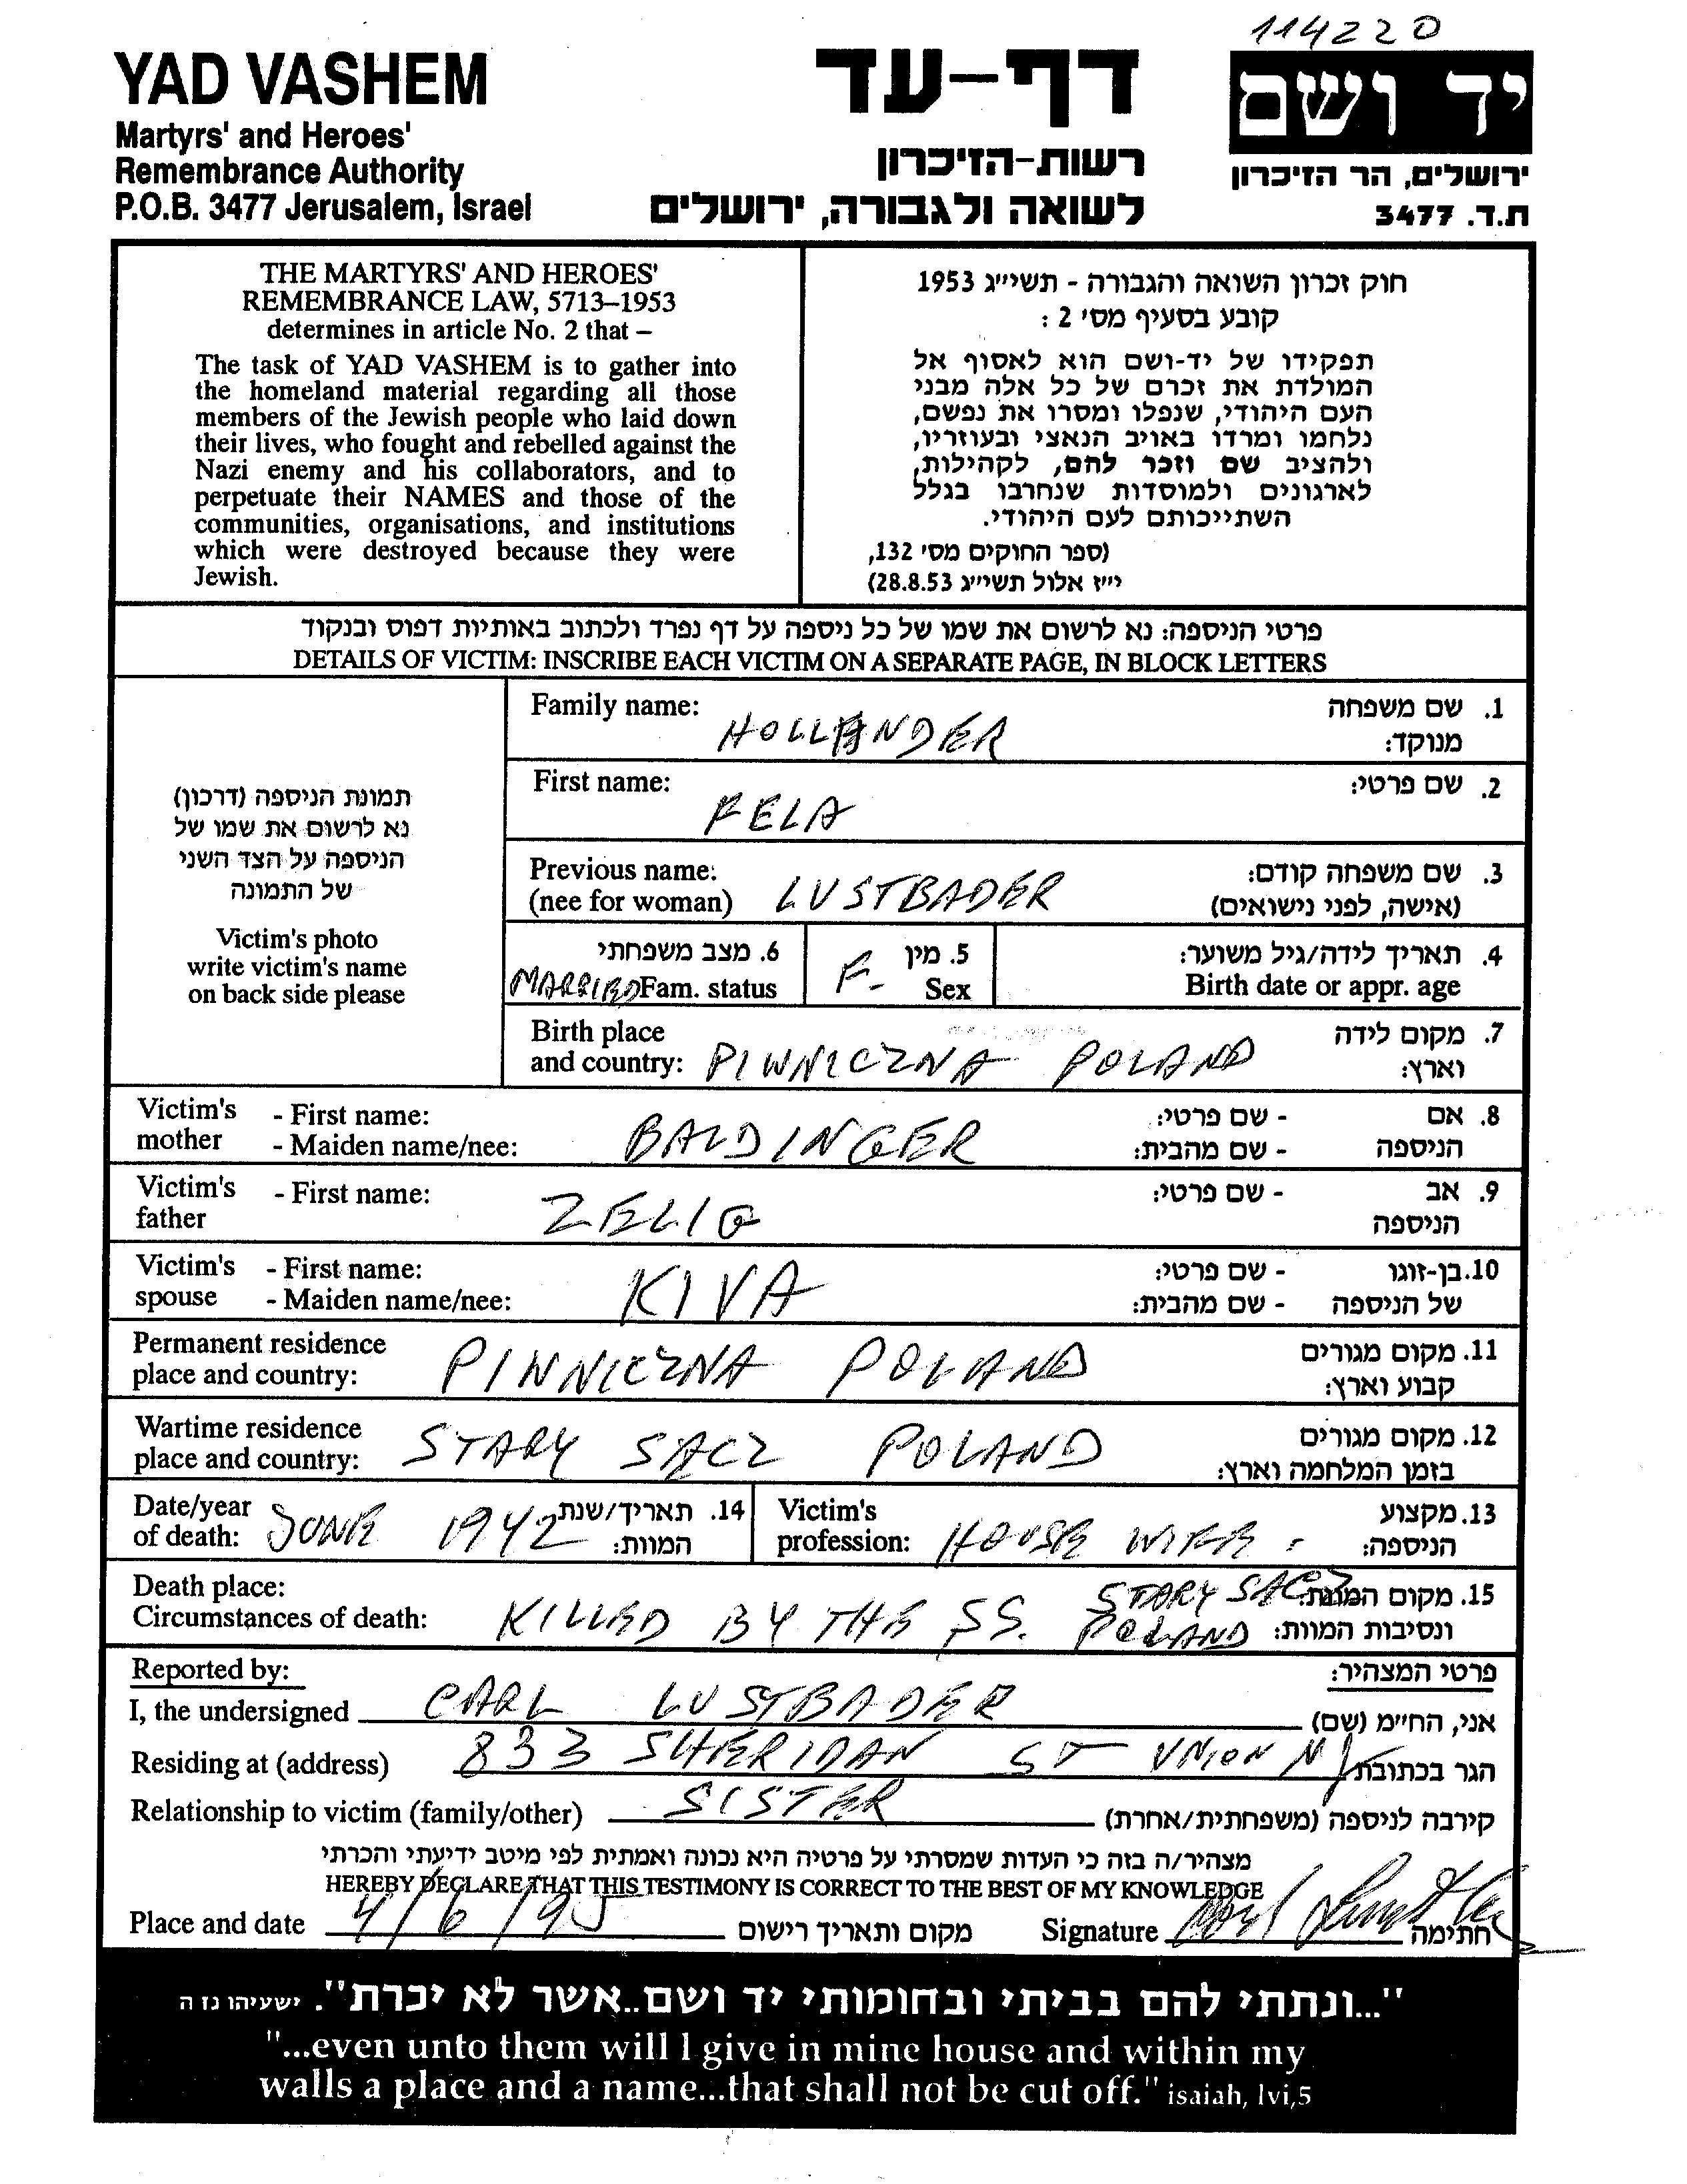 114220
YAD VASHEM
Martyrs' and Heroes'
Remembrance Authority
P.O.B. 3477 Jerusalem, Israel
דף-עד
רשות-הזיכרון
לשואה ולגבורה, ירושלים
יד ושם
ירושלים, הר הזיכרון
ת.ד. 3477
THE MARTYRS' AND HEROES'
REMEMBRANCE LAW, 5713–1953
determines in article No. 2 that –
The task of YAD VASHEM is to gather into
the homeland material regarding all those
members of the Jewish people who laid down
their lives, who fought and rebelled against the
Nazi enemy and his collaborators, and to
perpetuate their NAMES and those of the
communities, organisations, and institutions
which were destroyed because they were
Jewish.
חוק זכרון השואה והגבורה - תשי״ג 1953
קובע בסעיף מס׳ 2 :
תפקידו של יד-ושם הוא לאסוף אל
המולדת את זכרם של כל אלה מבני
העם היהודי, שנפלו ומסרו את נפשם,
נלחמו ומרדו באויב הנאצי ובעוזריו,
ולהציב שם וזכר להם, לקהילות,
לארגונים ולמוסדות שנחרבו בגלל
השתייכותם לעם היהודי.
(ספר החוקים מס׳ 132,
י״ז אלול תשי״ג 28.8.53)
פרטי הניספה: נא לרשום את שמו של כל ניספה על דף נפרד ולכתוב באותיות דפוס ובנקוד
DETAILS OF VICTIM: INSCRIBE EACH VICTIM ON A SEPARATE PAGE, IN BLOCK LETTERS
תמונת הניספה (דרכון)
נא לרשום את שמו של
הניספה על הצד השני
של התמונה
Victim's photo
write victim's name
on back side please
Family name: HOLLANDER 1. שם משפחה
מנוקד:
First name: FELA 2. שם פרטי:
Previous name: 3. שם משפחה קודם:
(nee for woman) LUSTBADER (אישה, לפני נישואים)
6. מצב משפחתי 5. מין 4. תאריך לידה/גיל משוער:
MARRIED Fam. status F- Sex Birth date or appr. age
Birth place 7. מקום לידה
and country: PIWNICZNA POLAND וארץ:
Victim's - First name: - שם פרטי: 8. אם
mother - Maiden name/nee: BALDINGER - שם מהבית: הניספה
Victim's - First name: ZELIG - שם פרטי: 9. אב
father הניספה
Victim's - First name: - שם פרטי: 10. בן-זוגו
spouse - Maiden name/nee: KIVA - שם מהבית: של הניספה
Permanent residence 11. מקום מגורים
place and country: PIWNICZNA POLAND קבוע וארץ:
Wartime residence 12. מקום מגורים
place and country: STARY SACZ POLAND בזמן המלחמה וארץ:
Date/year 14. תאריך/שנת Victim's 13. מקצוע
of death: JUNE 1942 המוות: profession: HOUSE WIFE - הניספה:
Death place: STARY SACZ 15. מקום המוות:
Circumstances of death: KILLED BY THE SS. POLAND ונסיבות המוות:
Reported by: פרטי המצהיר:
I, the undersigned CARL LUSTBADER אני, החי״מ (שם)
Residing at (address) 833 SHERIDAN ST UNION NJ הגר בכתובת
Relationship to victim (family/other) SISTER קירבה לניספה (משפחתית/אחרת)
מצהיר/ה בזה כי העדות שמסרתי על פרטיה היא נכונה ואמתית לפי מיטב ידיעתי והכרתי
HEREBY DECLARE THAT THIS TESTIMONY IS CORRECT TO THE BEST OF MY KNOWLEDGE
Place and date 4/6/95 מקום ותאריך רישום Signature חתימה
"...ונתתי להם בביתי ובחומותי יד ושם..אשר לא יכרת". ישעיהו נז ה
"...even unto them will I give in mine house and within my
walls a place and a name...that shall not be cut off." isaiah, lvi,5